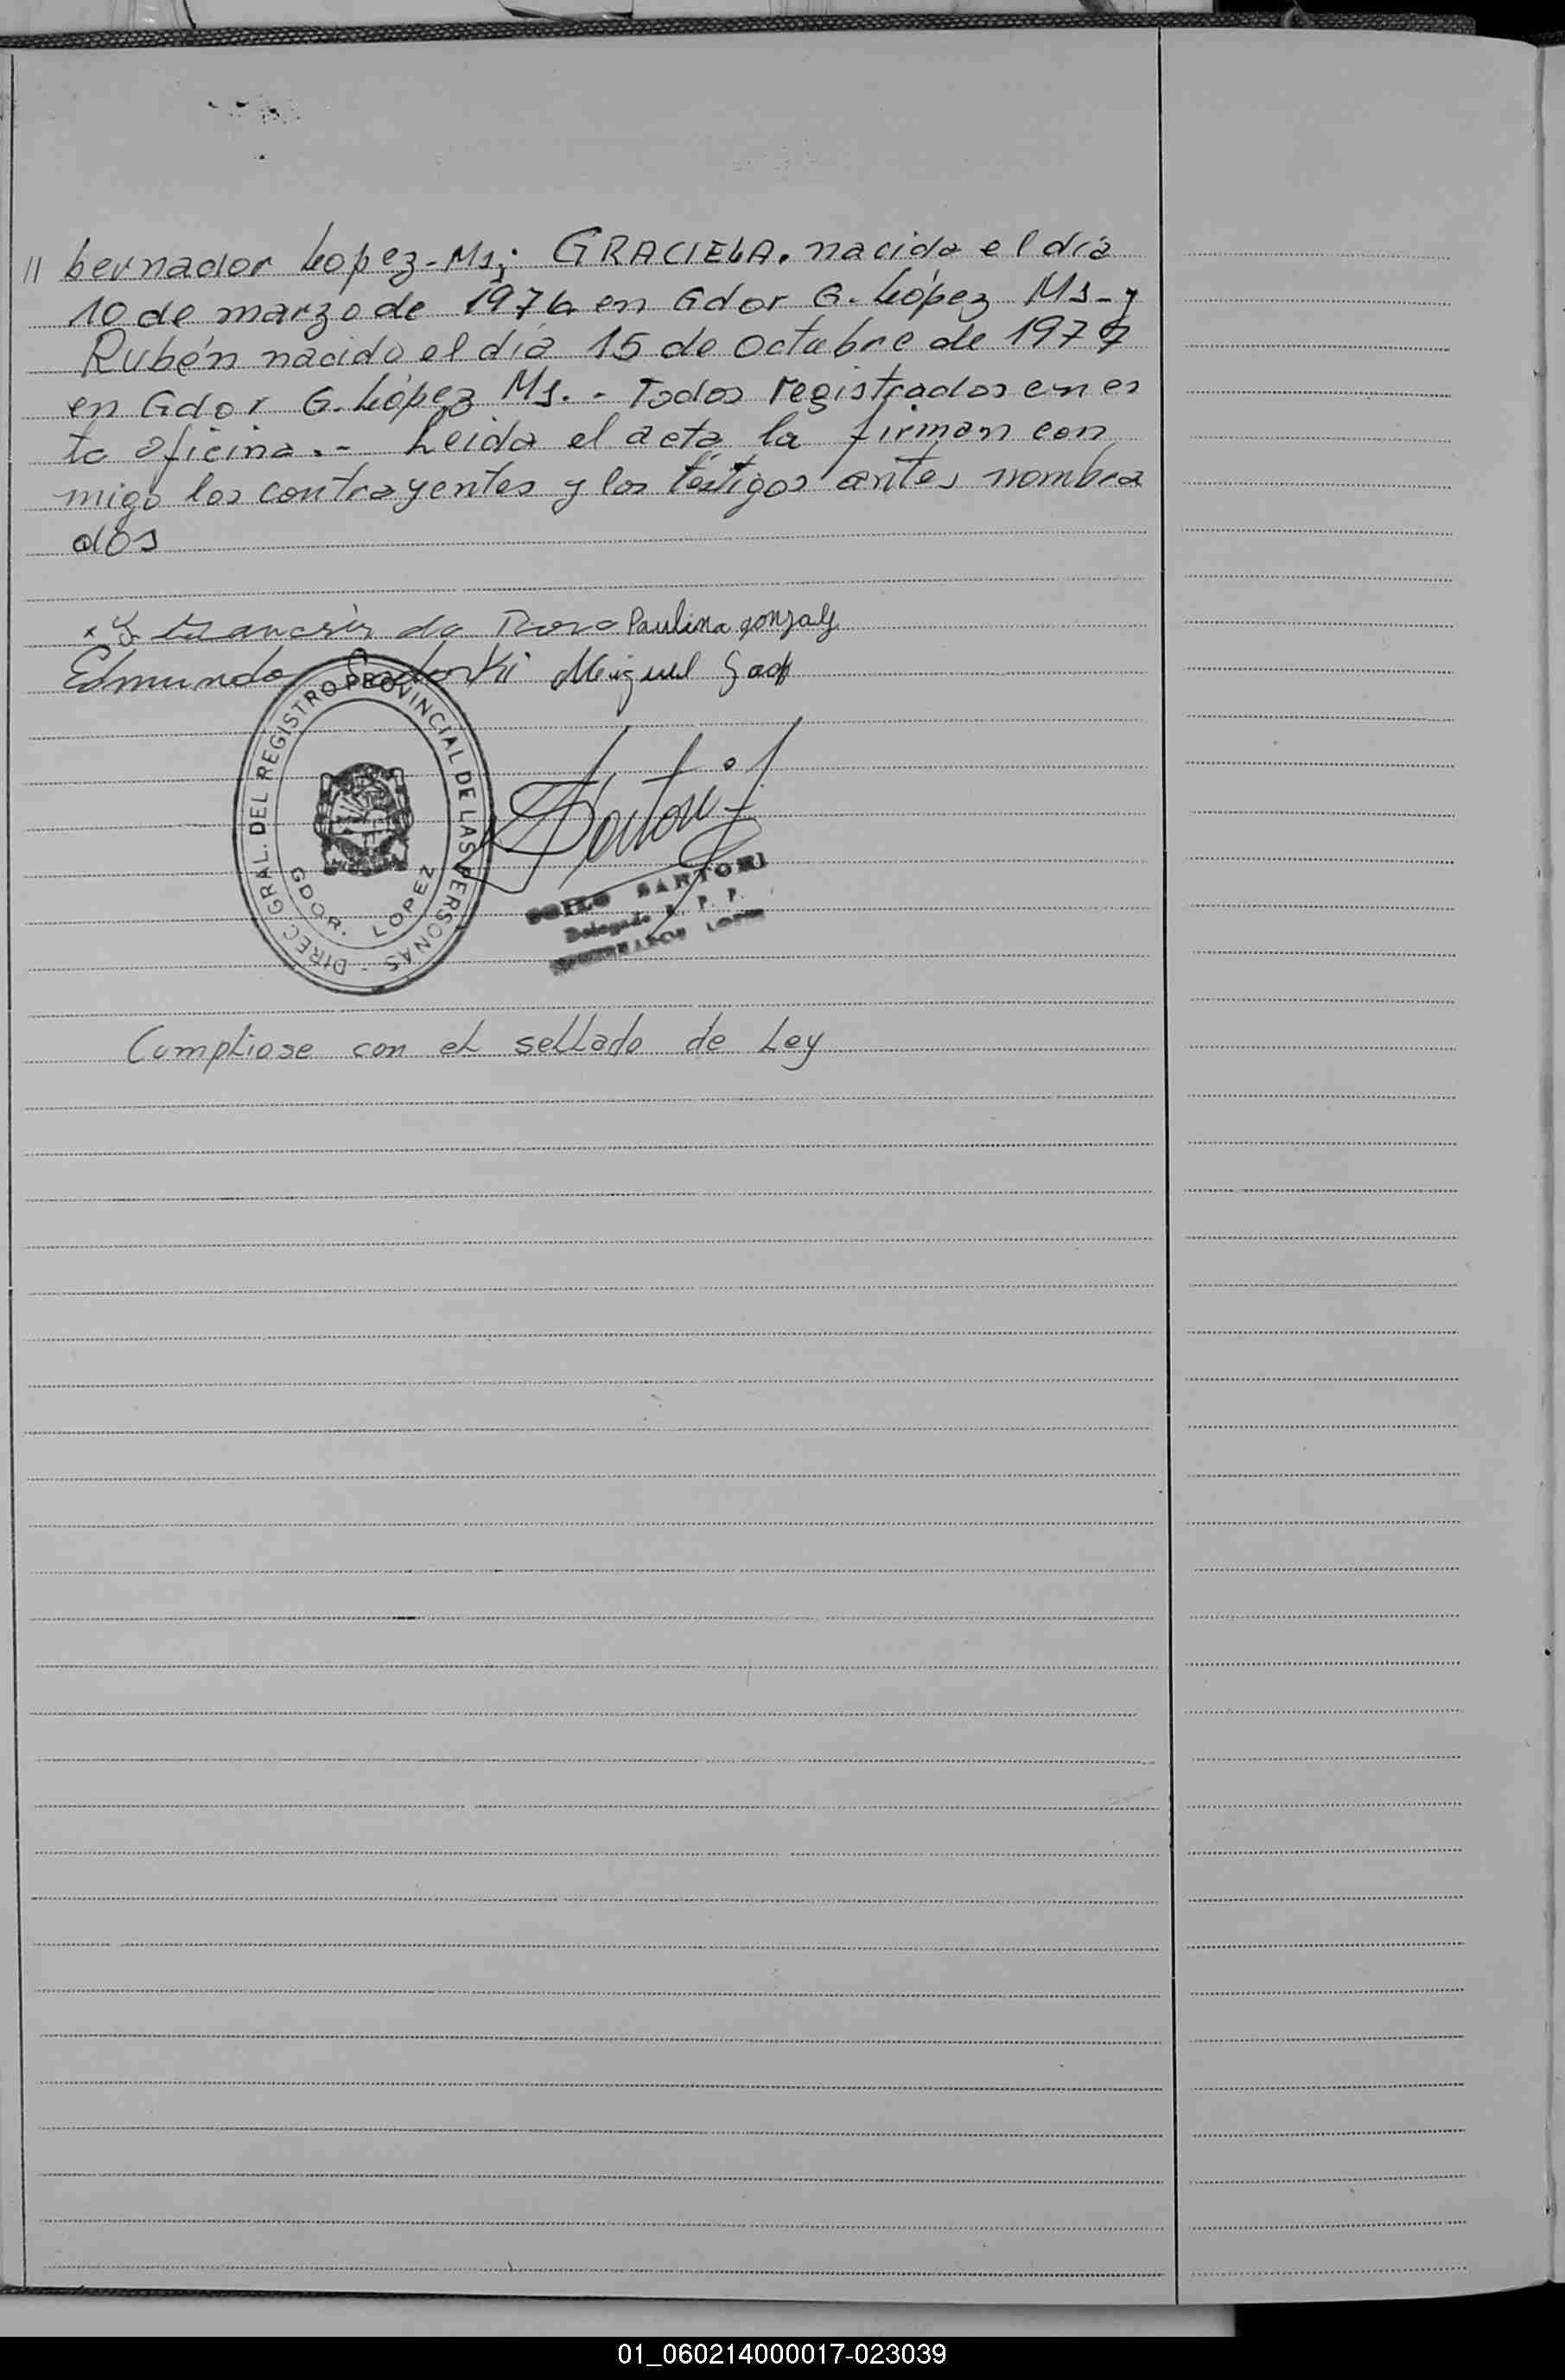 // bernador Lopez - Ms; GRACIELA. nacida el día
10 de marzo de 1976 en Gdor G. López Ms - y
Rubén nacido el día 15 de octubre de 1977
en Gdor G. López Ms. - Todos registrados en es
ta oficina. - Leida el acta la firman con
migo los contrayentes y los testigos antes nombra
dos
da Paulina gonzalez
Edmundo Miguel
DIREC. GRAL. DEL REGISTRO PROVINCIAL DE LAS PERSONAS -
GDOR. LOPEZ
Sartori
SARTORI
Delegado R. P. P.
GOBERNADOR LOPEZ
Cumpliose con el sellado de Ley
01_060214000017-023039